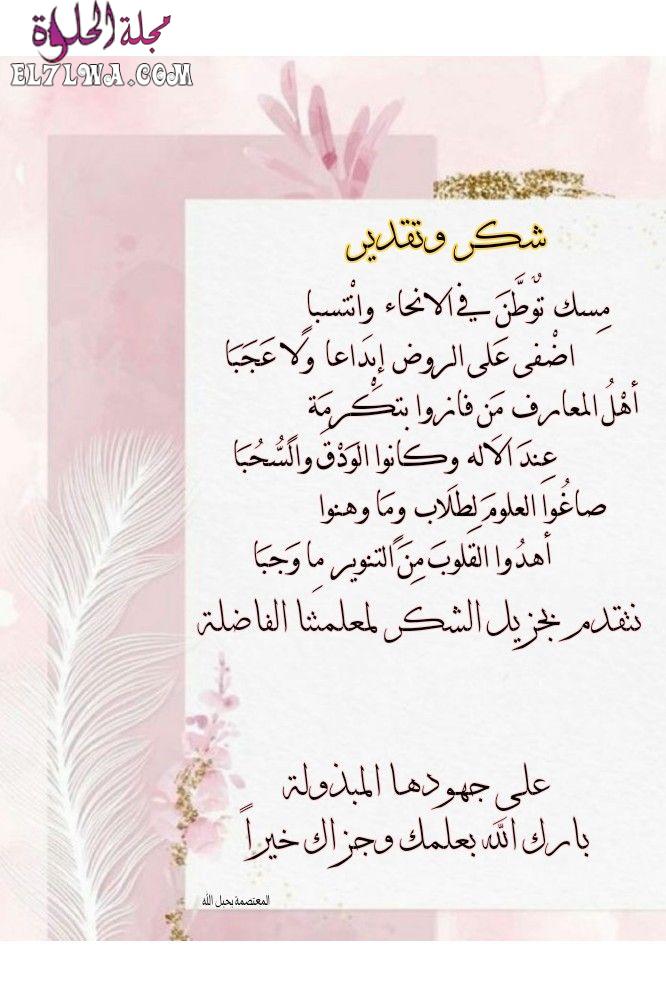 مجلة الحلوة
EL7LWA.COM
شكر وتقدير
مِسك تَوُطَّنَ في الانحاء وانْتسباٍ
اضْفى عَلى الروض إبدَاعا ولَا عَجَبَا
أهْلُ المعارف مَن فازوا بتكْرمَة
عِندَ الآله وكانوا الوَدْقَ والسُّحُبَا
صاغُوا العلومَ لِطلَاب ومَا وهنوا
أهدُوا القلوبَ مِنَ التنوير مِا وَجبَا
نتقدم بجزيل الشكر لمعلمتنا الفاضلة
على جهودها المبذولة
بارك الله بعلمك وجزاك خيراً
المعتصمة بحبل الله